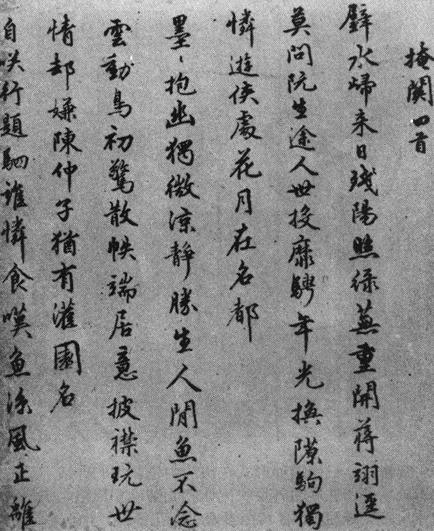 掩関四首
璧水歸来日殘陽照緑蕪重開蔣詡逕
莫問阮生途人世靡騁年光撫隙駒獨
憐遊俠處花月在名都
墨〻抱幽獨微涼静勝生人閒魚不淰
雲動鳥初驚散帙端居意披襟玩世
情却嫌陳仲子猶有灌園名
自咲行題駟誰憐食嘆魚涼風正離